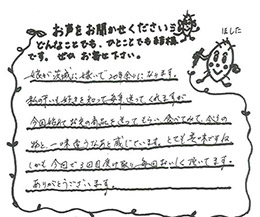 お声をお聞かせください
どんなことでも、ひとことでも結構
です。ぜひ お寄せ下さい。
ほした
娘が茨城に嫁いで20年余りになります。
私の干いも好きを知って毎年送ってくれますが
今回始めてお宅の商品を送ってもらい、食べてみて今までの
物と一味違うなあと感じています。とても美味です
しかも今回で3回目受け取り毎回おいしく頂いてます。
ありがとうございます。